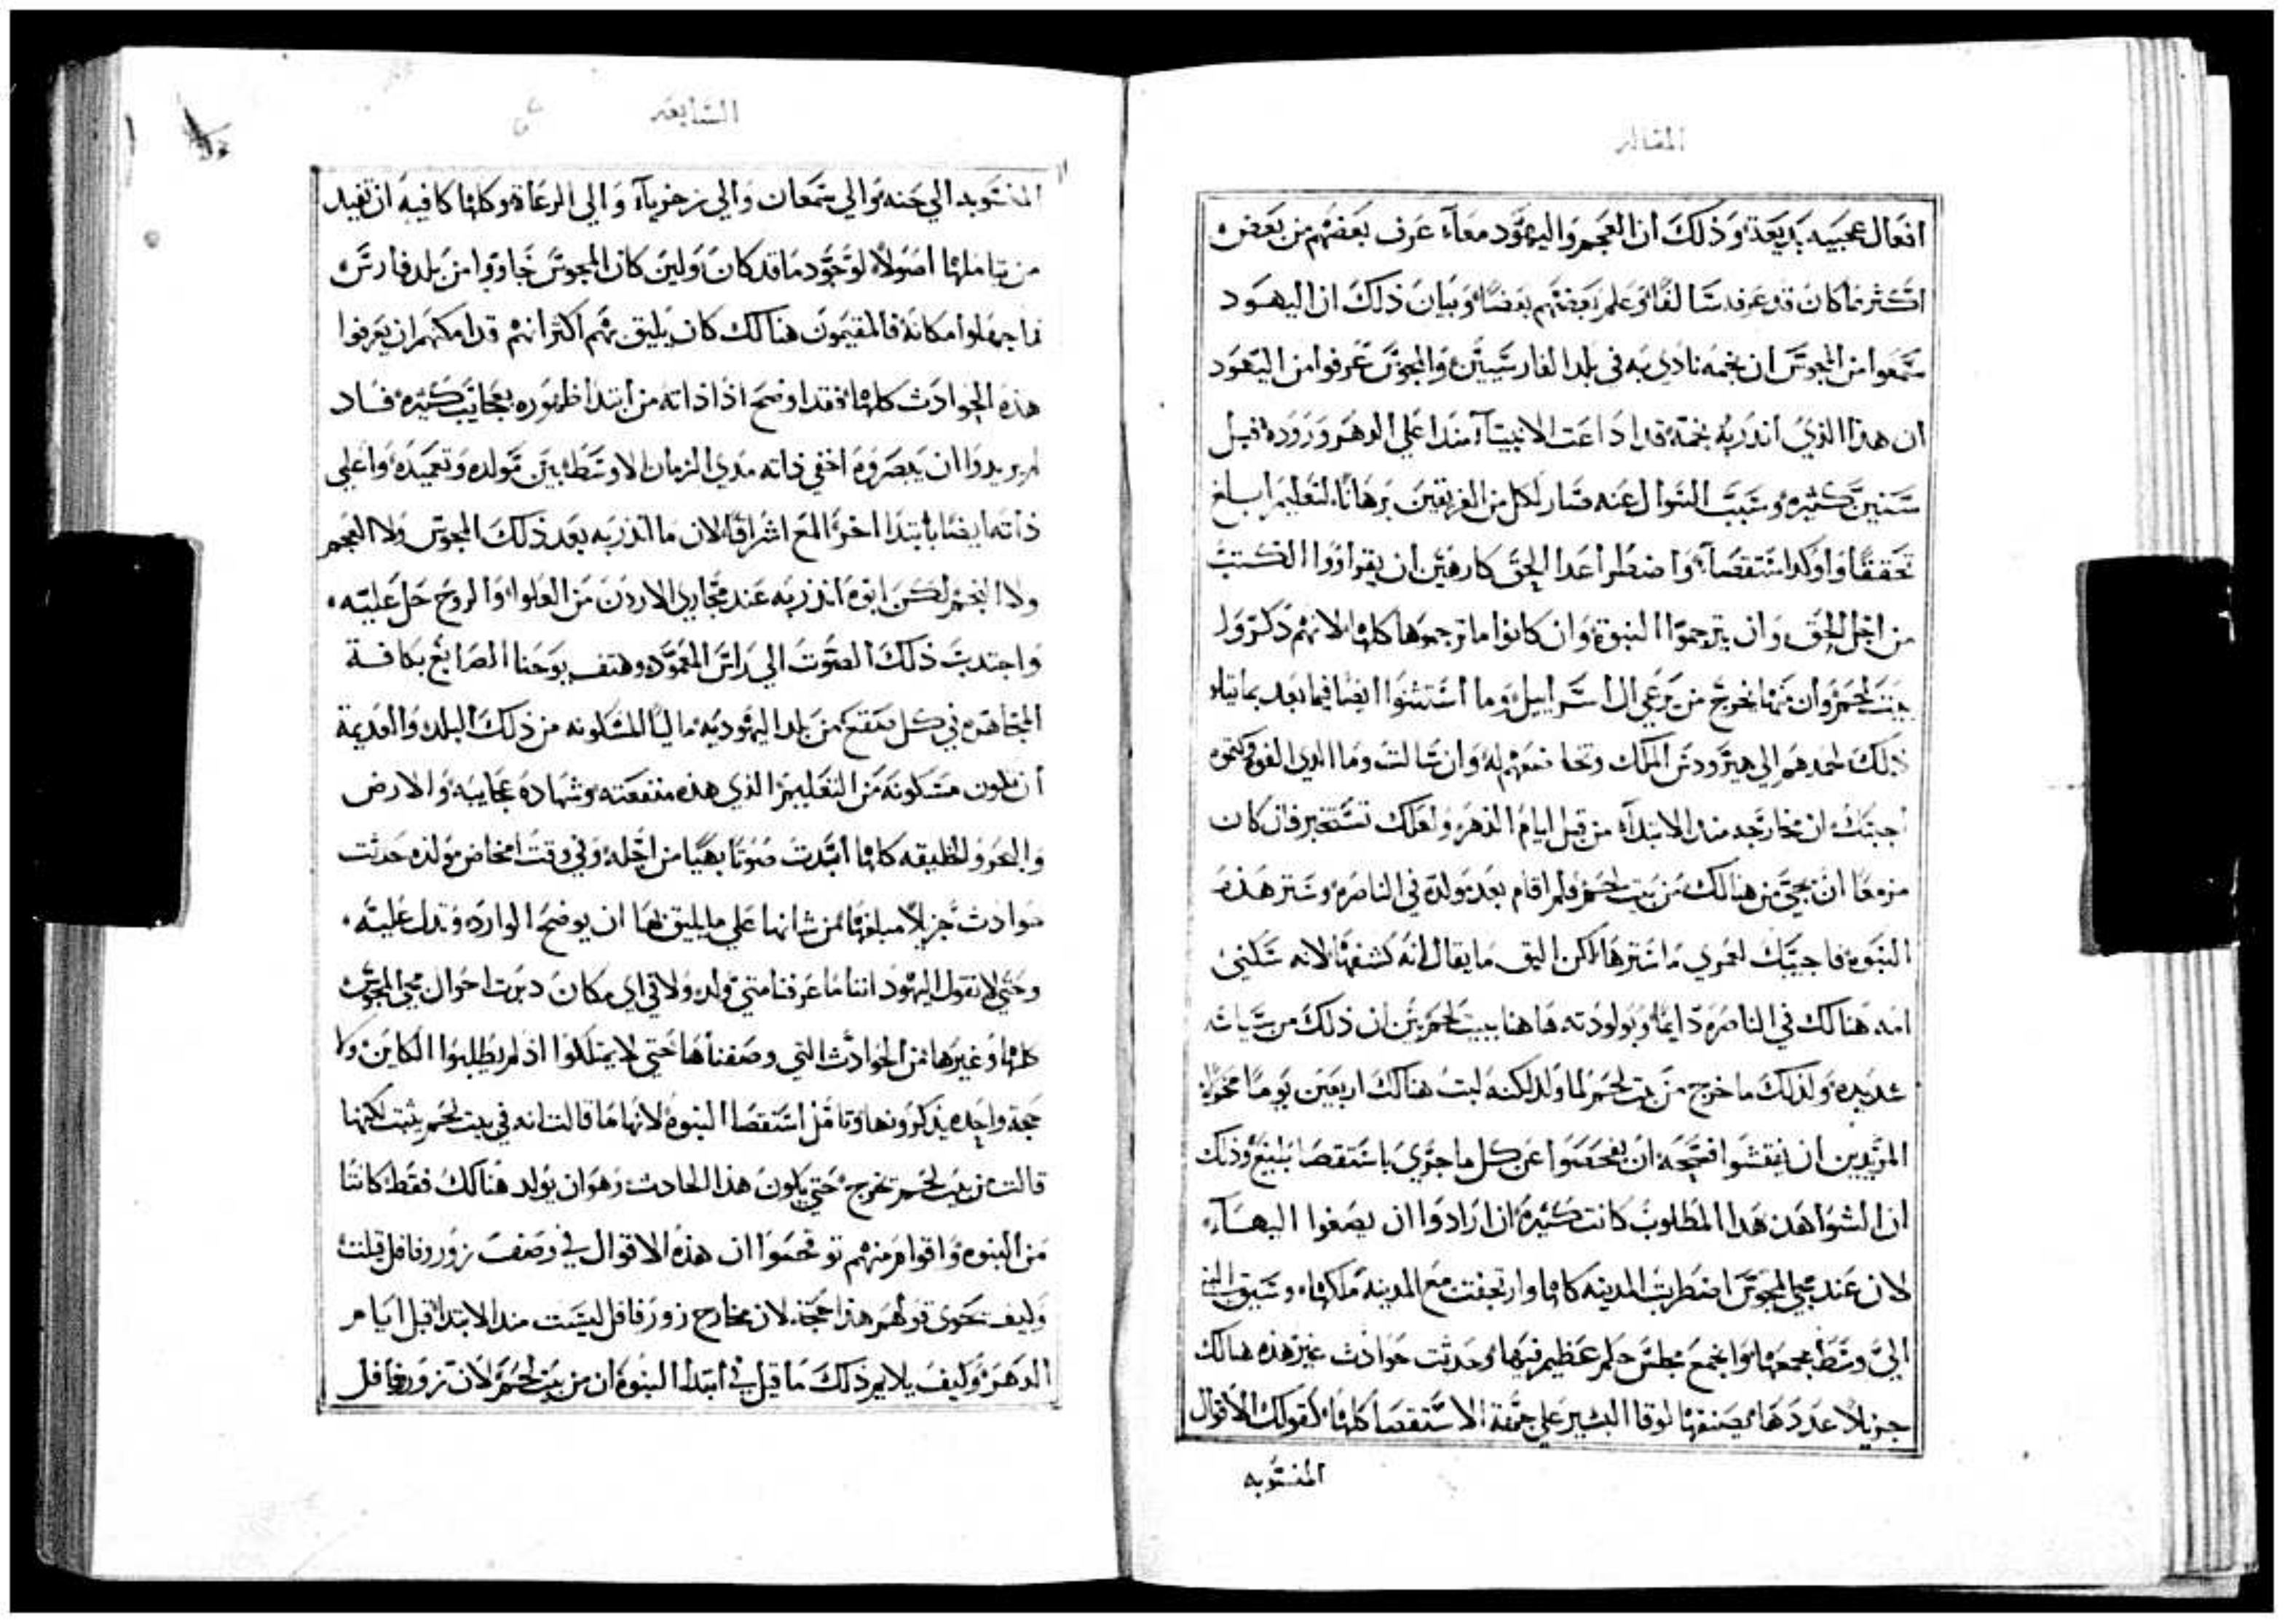 المقاله
افعال عجيبه بديعة وذلك ان العجم واليهود معاً عرف بعضهم من بعض
اكثر مما كان قد عرفه سالفاً وعلم بعضهم بعضاً وبيان ذلك ان اليهود
سمعوا من المجوس ان نجمه نادي به في بلد الفارسيين والمجوس عرفوا من اليهود
ان هذا الذي انذر به نجمه قد اذاعت الانبيآ منذ اعلي الدهر وروده قبل
سنين كثيره وسبب السوال عنه صار لكل من الفريقين برهاناً لتعليم ابلغ
تحققاً واوكد استقصآ واضطر اعدا الحق كارهين ان يقراووا الكتب
من اجل الحق وان يترجموا النبوة وان كانوا ما ترجموها كلها لانهم ذكروا
بيت لحم وان منها يخرج من يرعي ال اسراييل وما استثنوا ايضا فيما بعد بما يتلو
ذلك لحمدهم الي هيرودس الملك وان سالت وما الذي
اجبتك ان مخارجه منذ الابتدآ من قبل ايام الدهر ولعلك تستخبر فان كان
مزمعا ان يجي من هنالك من بيت لحم فلم اقام بعد مولده في الناصره وستر هذه
النبوه فاجيبك لعمري ما استرها لكن اليق ما يقال انه كشفها لانه سكني
امه هنالك في الناصره دايماً وبولودته هاهنا ببيت لحم بين ان ذلك من سياسه
عديده ولذلك ما خرج من بيت لحم لما ولد لكنه لبث هنالك اربعين يوما مخولا
المريدين ان يفتشوا فحجه ان يفحصوا عن كل ما جري باستقصا بليغ وذلك
ان الشواهد هذا المطلوب كانت كثيرة ان ارادوا ان يصغوا اليهاء
لان عند مجي المجوس اضطربت المدينه كلها وارتجفت مع المدينه ملكها وسيق النبي
الي وسط مجمعها واجمع مجلس حكم عظيم فيها وحدثت حوادث غير هذه هنالك
جزيلا عددها يصنفها لوقا البشير علي جهة الاستقصا كلها كقولك الاقوال
المنسوبه
السابعه
المنسوبه الي حنه والي سمعان والي زخريآ والي الرعاة وكلها كافيه ان تفيد
من يتاملها اصولاً لوجود ما قد كان ولين كان المجوس جاووا من بلد فارس
فما جهلوا مكانه فالمقيمون هنالك كان يليق بهم اكثر انهم قد امكنهم ان يعرفوا
هذه الحوادث كلها فقد اوضح اذا ذاته من ابتدا ظهوره بعجايب كثيره فاذ
لم يريدوا ان يبصروه اخفي ذاته مدي الزمان الاوسط بين مولده وتعميده واعلي
ذاته ايضا بابتدا اخر المع اشراقاً لان ما انذر به بعد ذلك المجوس ولا العجم
ولا النجم لكن ابوه انذر به عند مجاري الاردن من العلوا والروح حل عليه
واجتدبت ذلك الصوت الي راس المعمود وهتف يوحنا الصابغ بكافة
المجاهره في كل صقع من بلد اليهوديه ماليا المسكونه من ذلك البلد والعديمة
ان تكون مسكونه من التعليم الذي هذه منفعته وشهاده عجايبه والارض
والبحر والخليقه كلها ابتدت صوتا بهيا من اجله وفي وقت امخاض مولده حدثت
حوادث جزيلا مبلغها من شانها علي ما يليق بها ان يوضح الوارد وتدل عليه
وحتي لا تقول اليهود اننا ما عرفنا متي ولد ولا في اي مكان دبرت احوال مجي المجوس
كلها وغيرها من الحوادث التي وصفناها حتي لا يمتلكوا اذ لم يطلبوا الكاين ولا
حجة واحده يذكرونها وتامل استقصا النبوة لانها ما قالت انه في بيت لحم يثبت لكنها
قالت من بيت لحم تخرج حتي يكون هذا الحادث وهو ان يولد هنالك فقط كاننا
من النبوه واقوام منهم توقحوا ان هذه الاقوال في وصف زوروفافل قيلت
وكيف تحوي قولهم هذا حجة لان مخارج زورفافل ليست منذ الابتدا قبل ايام
الدهر وكيف يلايم ذلك ما قيل في ابتدا النبوه ان من بيت لحم لان زوروفافل